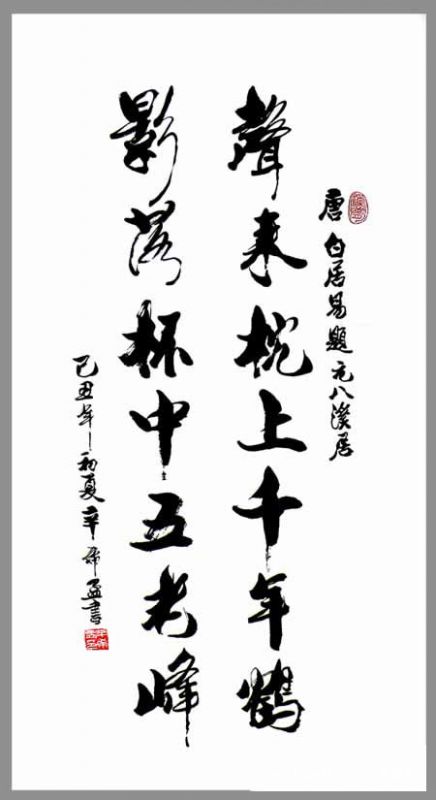 唐 白居易題元八溪居
聲来枕上千年鶴
影落杯中五老峰
己丑年初夏辛希孟書